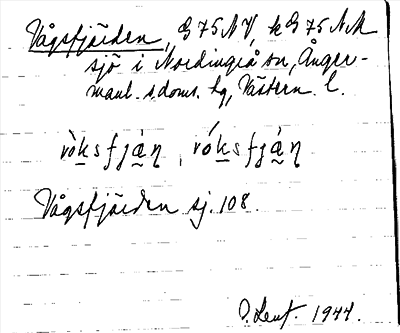 Vågsfjärden, G 75 NV, k G 75 NM
sjö i Nordingrå sn, Ånger-
manl. s. doms. hg, Västern. l.
vòksfján, vóksfján
Vågsfjärden sj. 108.
1944.